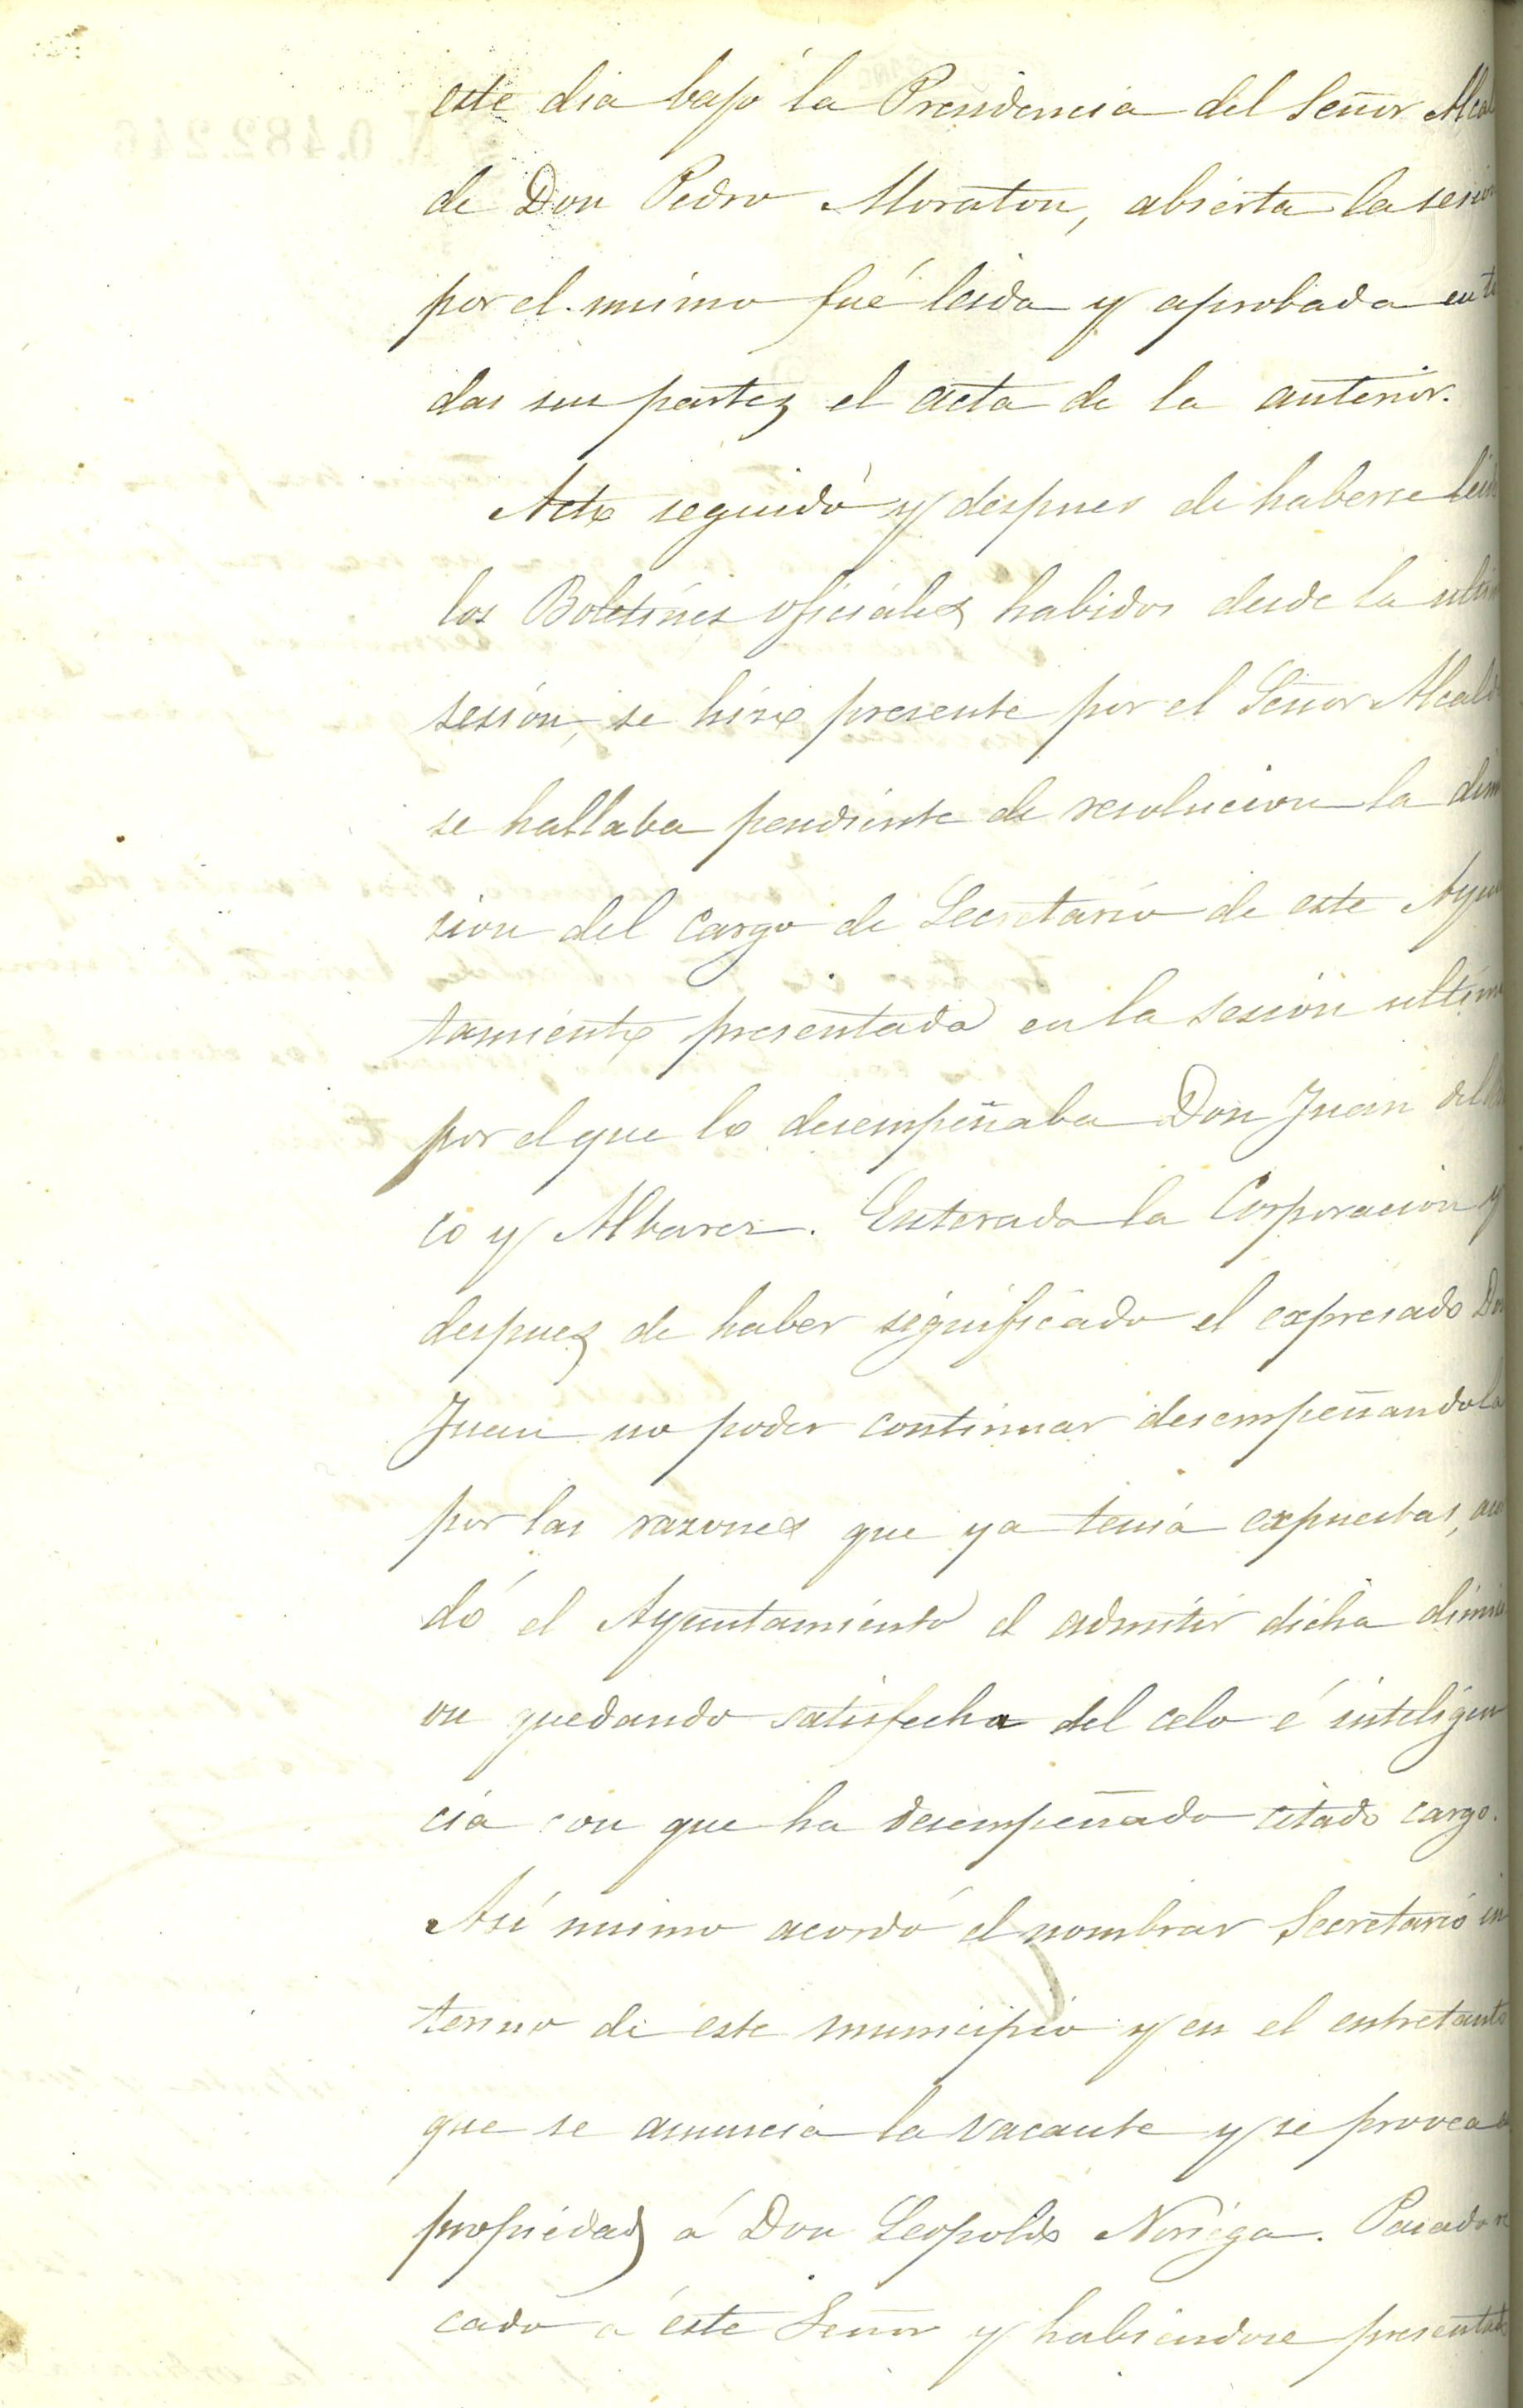 este dia bajo la Presidencia del Señor Alcal
de Don Pedro Moraton, abierta la sesion
por el mismo fué leida y aprobada en to
das sus partes el acta de la anterior.
Acto seguido y despues de haberse leido
los Boletines oficiales habidos desde la ultim
sesion, se hizo presente por el Señor Alcalde
se hallaba pendiente de resolucion la dimi
sion del cargo de Secretario de este Ayun
tamiento presentada en la sesion ultima
por el que lo desempeñaba Don Juan del
co y Albarez. Enterada la Corporacion y
despues de haber significado el expresado Don
Juan no poder continuar desempeñandola
por las razones que ya tenia expuestas, acor
dó el Ayuntamiento el admitir dicha dimisi
on quedando satisfecha del celo é inteligen
cia con que ha desempeñado citado cargo.
Así mismo acordó el nombrar Secretario in
terino de este municipio y en el entretanto
que se anuncia la vacante y se provea en
propiedad á Don Leopoldo Noriega. Pasado re
cado á este Señor y habiendose presentado